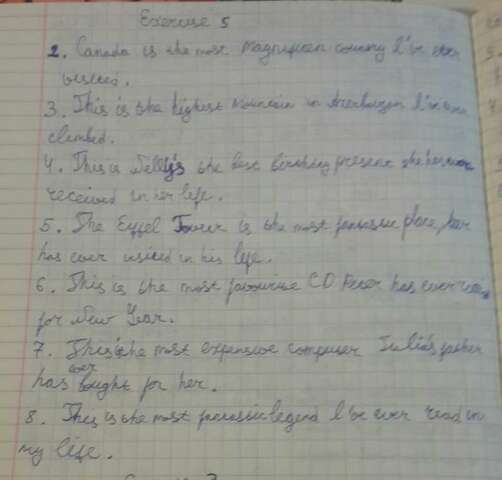 Exercise 5
2. Canada is the most magnificen country I've ever
visited.
3. This is the highest mountain in Azerbaijan I've ever
climbed.
4. This is Nelly's the best birthday present she has ever
received in her life.
5. The Eyffel Tower is the most fantastic place,
has ever visited in his life.
6. This is the most favourise CD Peter has ever
for New Year.
7. This is the most expensive computer Julia's father
has ever bought for her.
8. This is the most fantastic legend I've ever read in
my life.